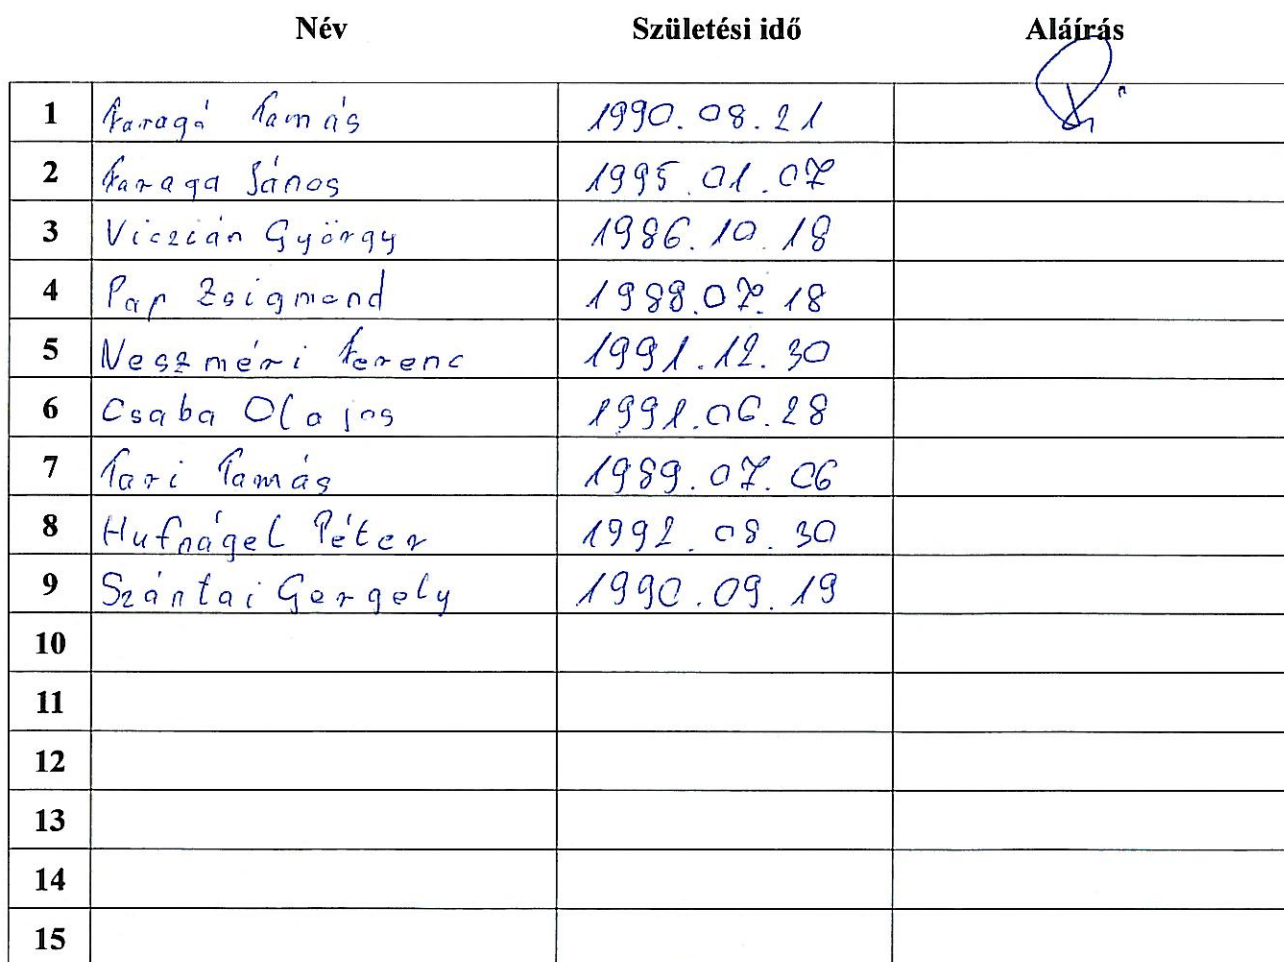 Név Születési idő Aláírás
1 Faragó Tamás 1990.08.21
2 Faraga János 1995.01.07
3 Viczián György 1986.10.18
4 Pap Zsigmond 1988.07.18
5 Neszméri Ferenc 1991.12.30
6 Csaba Olajos 1991.06.28
7 Tari Tamás 1989.07.06
8 Hufnágel Péter 1992.08.30
9 Szántai Gergely 1990.09.19
10
11
12
13
14
15